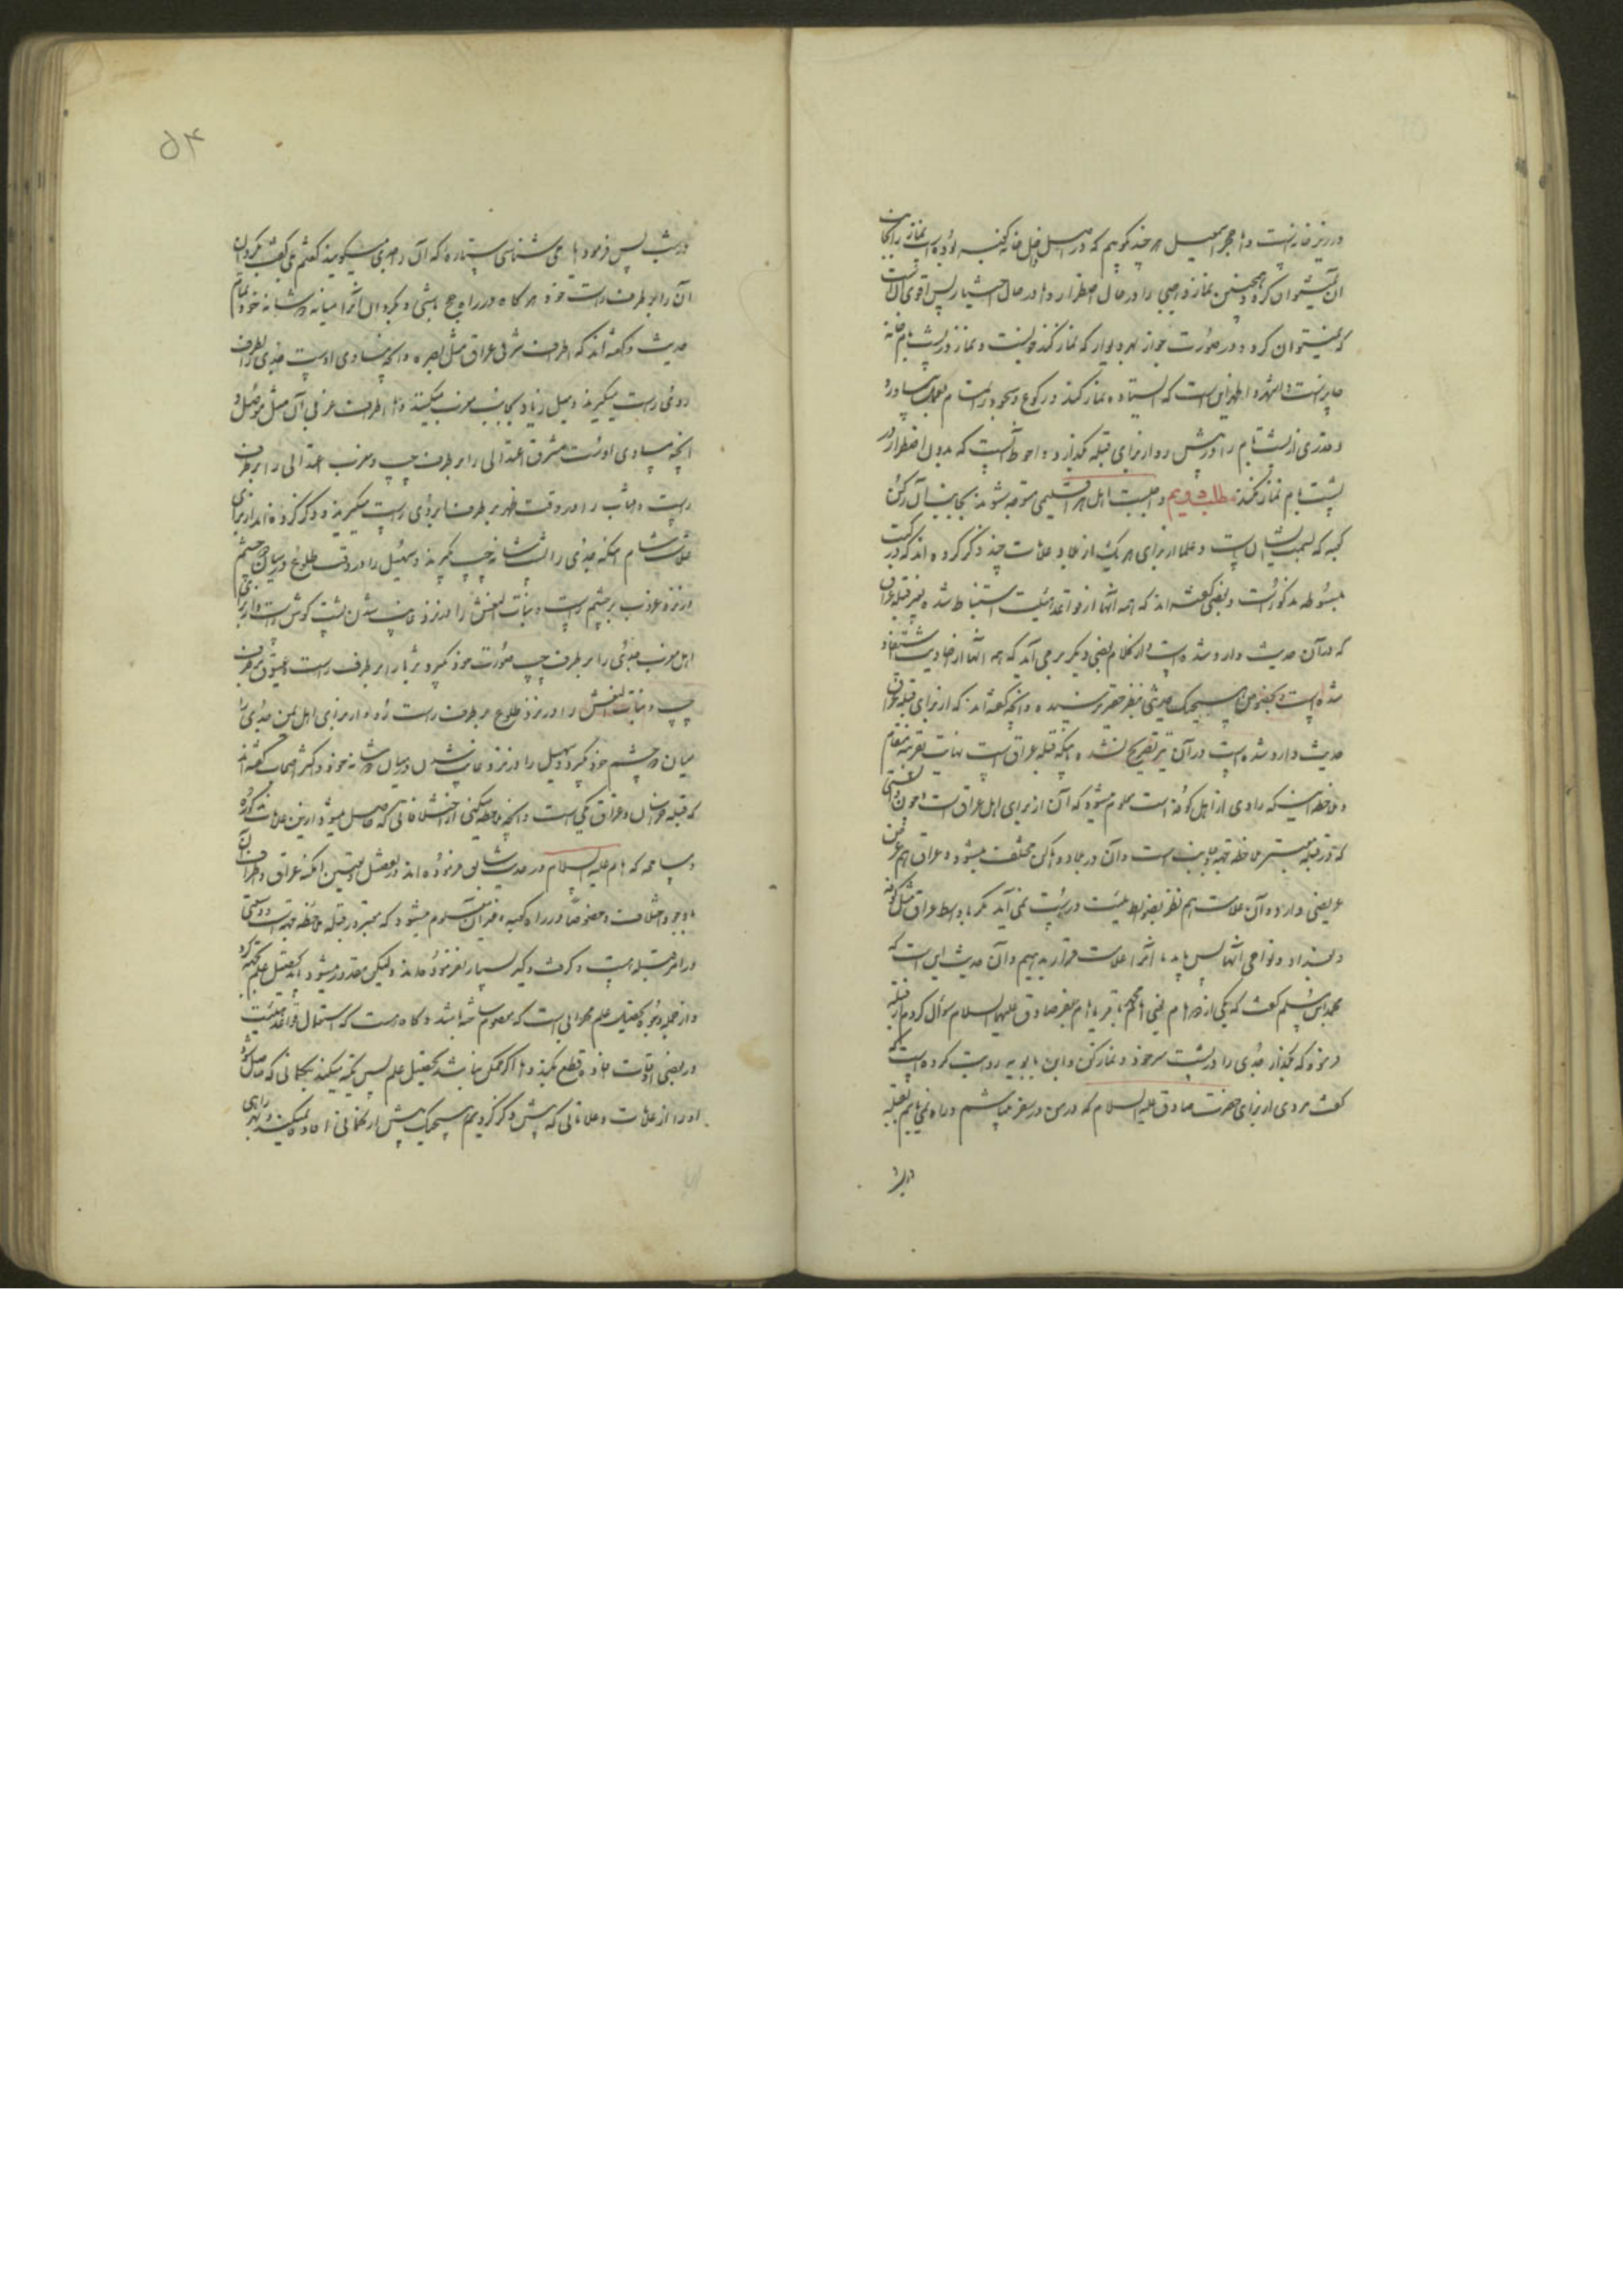 در زیر خانه است و اما حجر اسمعیل هر چند گوییم که در اصل داخل خانه کعبه بوده است نماز را بجانب
آن نمیتوان کرد و همچنین نماز واجبی را در حال اضطرار و اما در حال اختیار پس اقوی آنست
که نمیتوان کرد و در صورت جواز بهر دیوار که نماز کند خوبست و نماز در پشت بام خانه
جایز است و اشهر و اظهر این است که ایستاده نماز کند و رکوع و سجود را تمام بعمل بیاورد
و قدری از پشت بام را در پیش رو از برای قبله بگذارد و احوط آنست که بدون اضطرار در
پشت بام نماز نکند مطلب دویم واجبست اهل هر اقلیمی متوجه شوند بجانب آن رکن
کعبه که بسمت ایشان است و علما از برای هر یک از بلاد علامات چند ذکر کرده اند که در کتب
مبسوطه مذکور است و بعضی گفته اند که همه آنها از قواعد هیئت استنباط شده بغیر قبله عراق
که در آن حدیث وارد شده است و از کلام بعضی دیگر بر می آید که همه آنها از احادیث استفاد
شده است و بخصوص هیچیک حدیثی بنظر حقیر نرسیده و آنچه گفته اند که از برای قبله عراق
حدیث وارد شده است در آن نیز تصریح نشده باینکه قبله عراق است نهایت بقرینه مقام
و ملاحظه اینکه راوی از اهل کوفه است معلوم میشود که آن از برای اهل عراق است و چون دانستی
که در قبله معتبر ملاحظه جهة و جانب است و آن در بلاد و اماکن مختلف میشود و عراق هم عرض
عریضی دارد و آن علامت هم نظر بضوابط هیئت درست نمی آید مگر باوسط عراق مثل کوفه
و بغداد و نواحی آنها پس باید ما آنرا علامت قرار بدهیم و آن حدیث این است که
محمد بن مسلم گفت که یکی از دو امام یعنی امام محمد باقر یا امام جعفر صادق علیهما السلام سؤال کردم از قبله
فرمود که بگذار جدی را در پشت سر خود و نماز کن و ابن بابویه روایت کرده است که
گفت مردی از برای حضرت صادق علیه السلام که من در سفر میباشم و راه نمی یابم بقبله
در شب
۵۴
در شب پس فرمود ایا می شناسی ستاره که آن را جدی میگویند گفتم بلی گفت بگردان
آن را بر طرف راست خود و هر گاه در راه حج باشی بگردان آنرا میانه دو شانه خود تمام
حدیث و گفته اند که اطراف شرقی عراق مثل بصره و آنچه مساوی اوست جدی را بطرف
روی راست میگیرند و میل زیاد بجانب مغرب میکنند و اما اطراف غربی آن مثل موصل و
آنچه مساوی اوست مشرق اعتدالی را بر طرف چپ و مغرب اعتدالی را بر طرف
راست و آفتاب را در وقت ظهر بر طرف ابروی راست میگیرند و ذکر کرده اند از برای
علامت شام اینکه جدی را پشت شانه چپ گیرند و سهیل را در وقت طلوع در میان دو چشم
و نزد غروب بر چشم راست و بنات النعش را در نزد غایب شدن پشت گوش راست و از برای
اهل مغرب جدی را بر طرف چپ صورت خود گیرد و ثریا را بر طرف راست و عیوق بر طرف
چپ و بنات النعش را در نزد طلوع بر طرف راست رو و از برای اهل یمن جدی را
میان دو چشم خود گیرد و سهیل را در نزد غایب شدن در میان دو شانه خود و اکثر اصحاب گفته اند
که قبله خراسان و عراق یکی است و آنچه ملاحظه میکنی از اختلافاتی که حاصل میشود از این علامات مذکوره
و مسامحه که امام علیه السلام در حدیث سابق فرموده اند در تفصیل و تعیین امکنه عراق و اطراف آن
با وجود اختلاف و خصوصاً در راه کعبه و غیر آن معلوم میشود که معتبر در قبله ملاحظه جهت است و وسعتی
در امر قبله هست و کرفت و گیر بسیار نفرموده اند و لیکن مقدور میشود باید تحصیل علم بجهة کرد
و از جمله وجوه تحصیل علم محرابی است که معصوم ساخته باشد و گاه هست که استعمال قواعد هیئت
در بعضی اوقات افاده قطع میکند و اما اگر ممکن نباشد تحصیل علم پس تکیه میکند بگمانی که حاصل شود
او را از علامات و علاماتی که پیش ذکر کردیم هیچیک پیش از گمانی افاده نمیکنند و بهر راهی